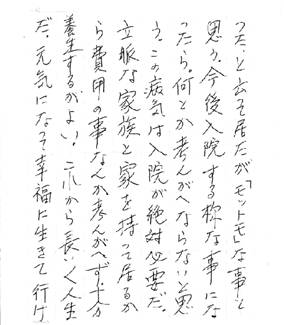 つたと云て居たが「モットモ」な事と
思う。今後入院する様な事にな
つたら。何とか考んがへならないと思
う。この病気は入院が絶対必要だ。
立脈な家族と家を持つて居るか
ら費用の事なんか考んがへず十分
養生するがよい。これから長いく人生
だ。元気になつて幸福に生きて行け